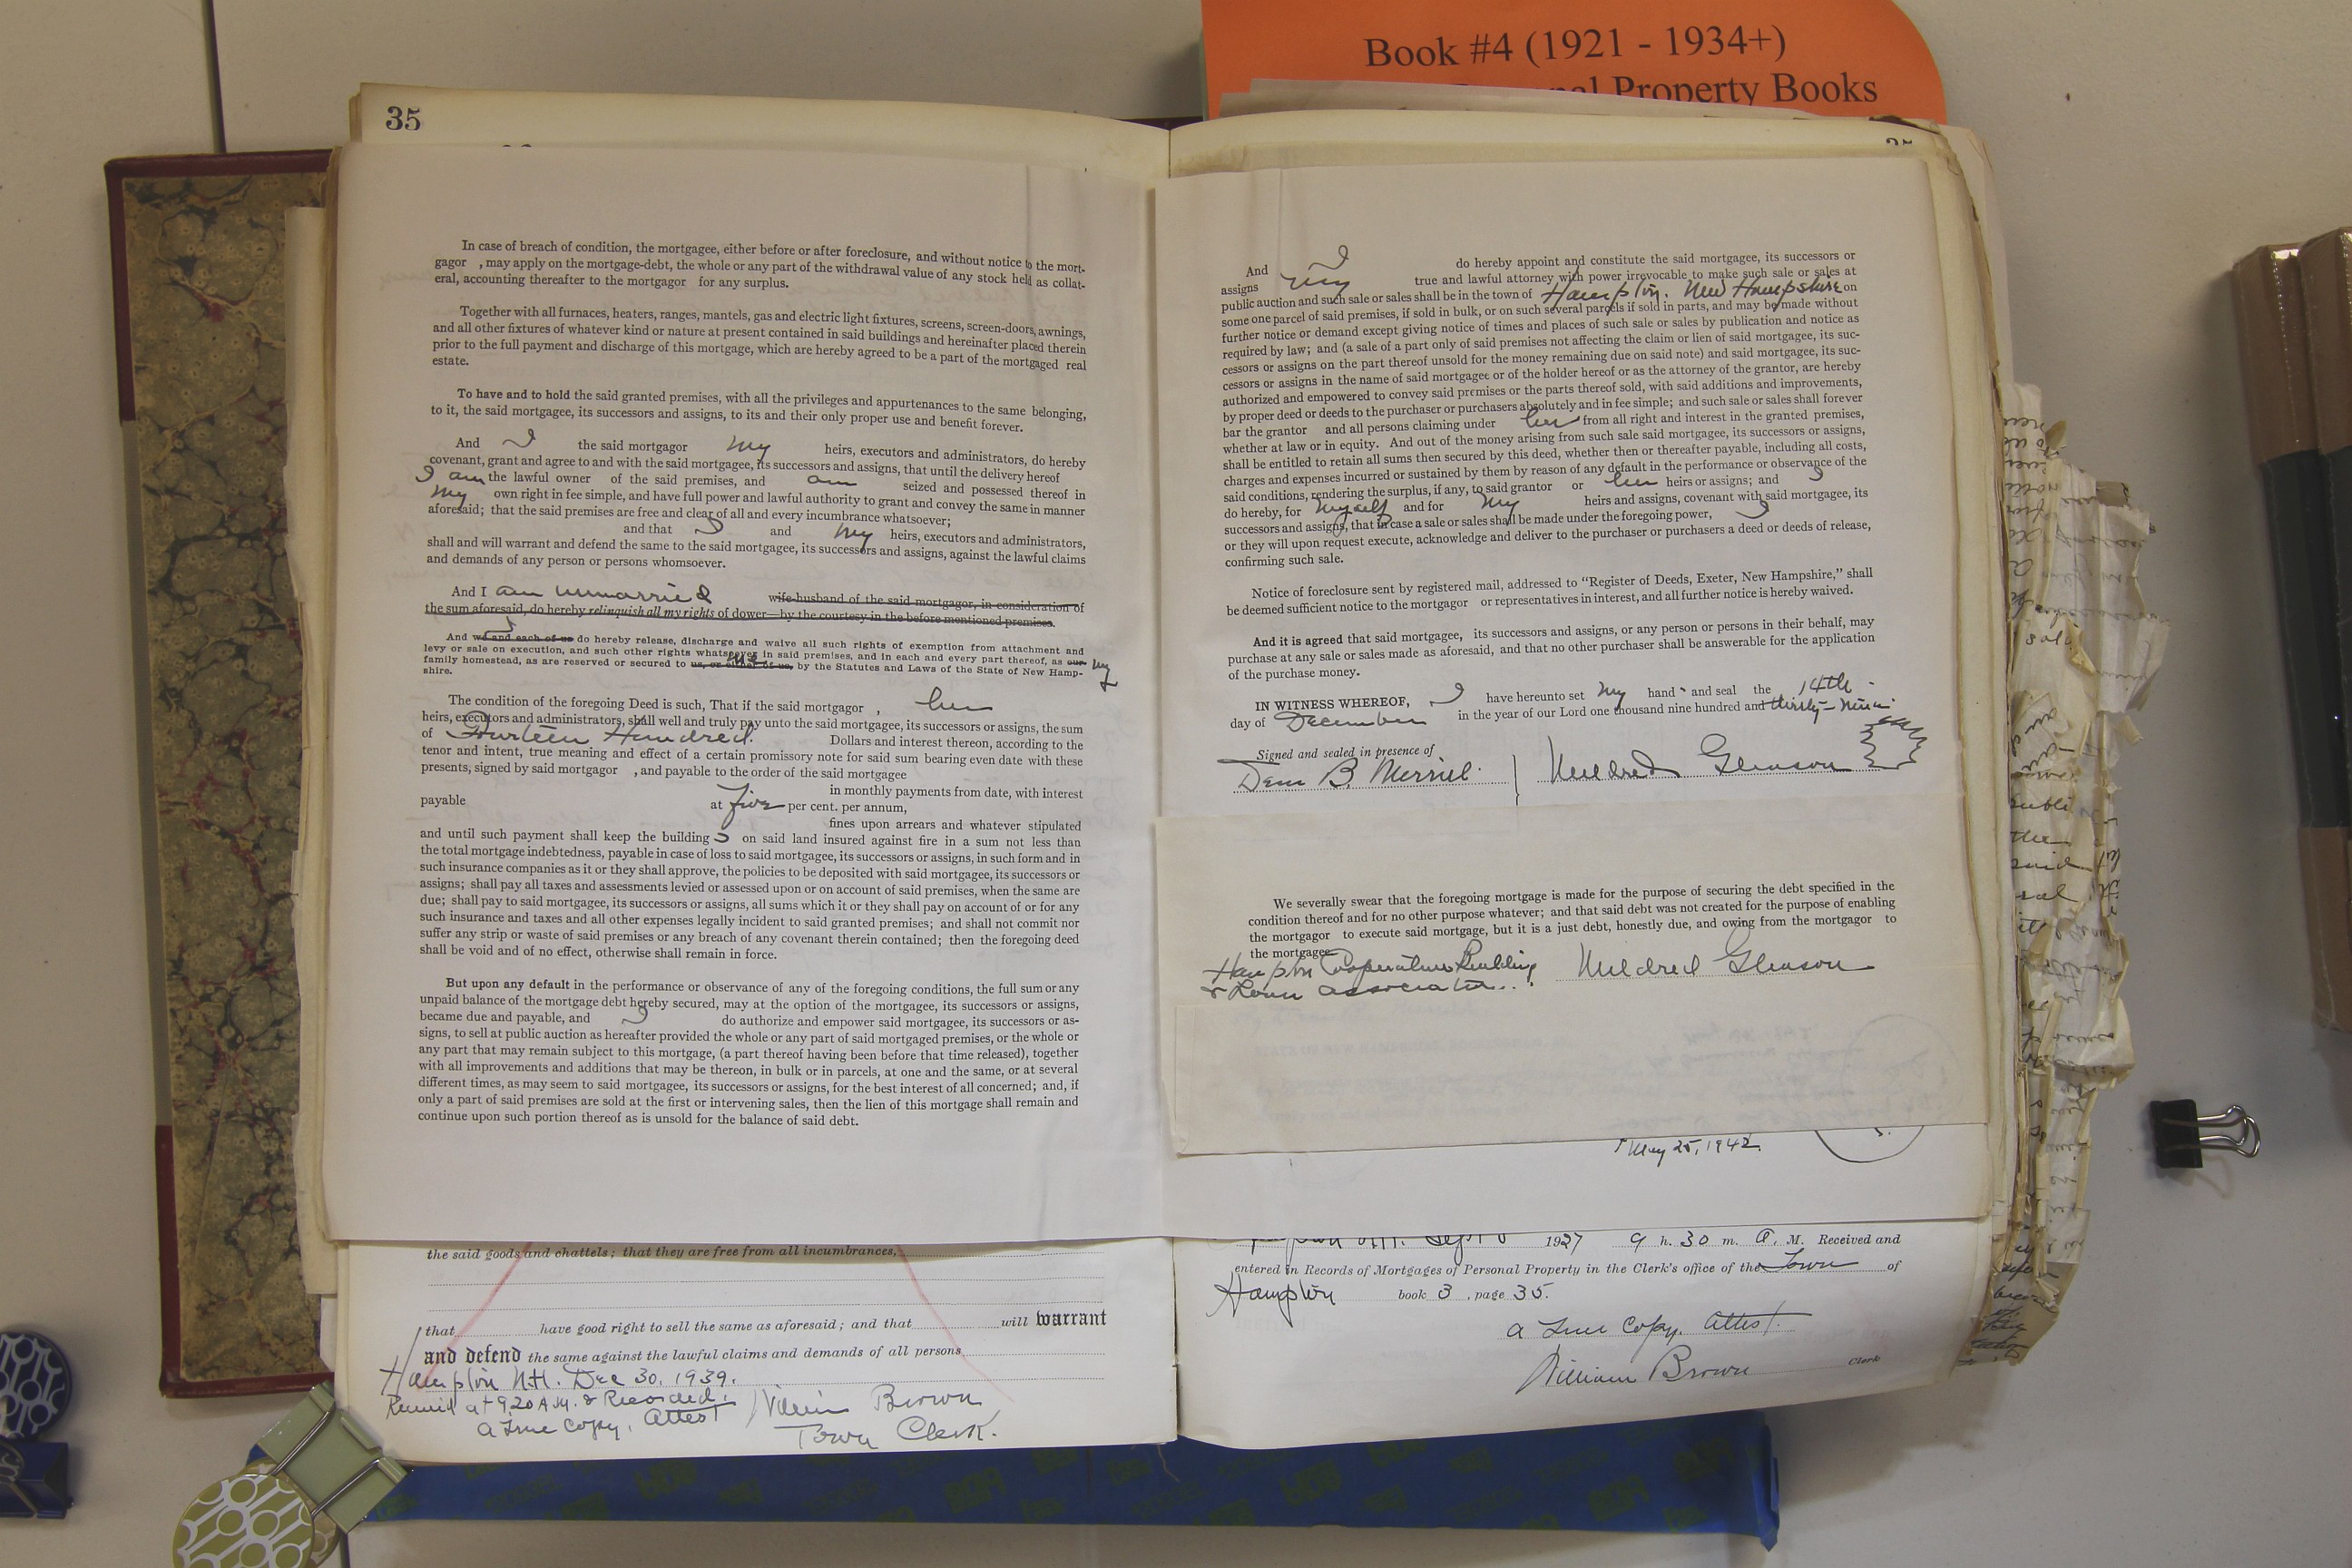 Book #4 (1921 - 1934+)
Property Books
35
In case of breach of condition, the mortgagee, either before or after foreclosure, and without notice to the mort-
gagor , may apply on the mortgage-debt, the whole or any part of the withdrawal value of any stock held as collat-
eral, accounting thereafter to the mortgagor for any surplus.
Together with all furnaces, heaters, ranges, mantels, gas and electric light fixtures, screens, screen-doors, awnings,
and all other fixtures of whatever kind or nature at present contained in said buildings and hereinafter placed therein
prior to the full payment and discharge of this mortgage, which are hereby agreed to be a part of the mortgaged real
estate.
To have and to hold the said granted premises, with all the privileges and appurtenances to the same belonging,
to it, the said mortgagee, its successors and assigns, to its and their only proper use and benefit forever.
And I the said mortgagor my heirs, executors and administrators, do hereby
covenant, grant and agree to and with the said mortgagee, its successors and assigns, that until the delivery hereof
I am the lawful owner of the said premises, and am seized and possessed thereof in
my own right in fee simple, and have full power and lawful authority to grant and convey the same in manner
aforesaid; that the said premises are free and clear of all and every incumbrance whatsoever;
and that I and my heirs, executors and administrators,
shall and will warrant and defend the same to the said mortgagee, its successors and assigns, against the lawful claims
and demands of any person or persons whomsoever.
And I am unmarried wife-husband of the said mortgagor, in consideration of
the sum aforesaid, do hereby relinquish all my rights of dower—by the courtesy in the before mentioned premises.
And we and each of us do hereby release, discharge and waive all such rights of exemption from attachment and
levy or sale on execution, and such other rights whatsoever in said premises, and in each and every part thereof, as our my
family homestead, as are reserved or secured to us, or either of us, me by the Statutes and Laws of the State of New Hamp-
shire.
The condition of the foregoing Deed is such, That if the said mortgagor , her
heirs, executors and administrators, shall well and truly pay unto the said mortgagee, its successors or assigns, the sum
of Fourteen Hundred Dollars and interest thereon, according to the
tenor and intent, true meaning and effect of a certain promissory note for said sum bearing even date with these
presents, signed by said mortgagor , and payable to the order of the said mortgagee
in monthly payments from date, with interest
payable at five per cent. per annum,
fines upon arrears and whatever stipulated
and until such payment shall keep the building s on said land insured against fire in a sum not less than
the total mortgage indebtedness, payable in case of loss to said mortgagee, its successors or assigns, in such form and in
such insurance companies as it or they shall approve, the policies to be deposited with said mortgagee, its successors or
assigns; shall pay all taxes and assessments levied or assessed upon or on account of said premises, when the same are
due; shall pay to said mortgagee, its successors or assigns, all sums which it or they shall pay on account of or for any
such insurance and taxes and all other expenses legally incident to said granted premises; and shall not commit nor
suffer any strip or waste of said premises or any breach of any covenant therein contained; then the foregoing deed
shall be void and of no effect, otherwise shall remain in force.
But upon any default in the performance or observance of any of the foregoing conditions, the full sum or any
unpaid balance of the mortgage debt hereby secured, may at the option of the mortgagee, its successors or assigns,
became due and payable, and I do authorize and empower said mortgagee, its successors or as-
signs, to sell at public auction as hereafter provided the whole or any part of said mortgaged premises, or the whole or
any part that may remain subject to this mortgage, (a part thereof having been before that time released), together
with all improvements and additions that may be thereon, in bulk or in parcels, at one and the same, or at several
different times, as may seem to said mortgagee, its successors or assigns, for the best interest of all concerned; and, if
only a part of said premises are sold at the first or intervening sales, then the lien of this mortgage shall remain and
continue upon such portion thereof as is unsold for the balance of said debt.
the said goods and chattels; that they are free from all incumbrances,
that have good right to sell the same as aforesaid; and that will warrant
and defend the same against the lawful claims and demands of all persons
Hampton N.H. Dec 30, 1939.
Received at 9.20 A.M. & Recorded.
a True Copy, Attest William Brown
Town Clerk.
And I do hereby appoint and constitute the said mortgagee, its successors or
assigns my true and lawful attorney with power irrevocable to make such sale or sales at
public auction and such sale or sales shall be in the town of Hampton, New Hampshire on
some one parcel of said premises, if sold in bulk, or on such several parcels if sold in parts, and may be made without
further notice or demand except giving notice of times and places of such sale or sales by publication and notice as
required by law; and (a sale of a part only of said premises not affecting the claim or lien of said mortgagee, its suc-
cessors or assigns on the part thereof unsold for the money remaining due on said note) and said mortgagee, its suc-
cessors or assigns in the name of said mortgagee or of the holder hereof or as the attorney of the grantor, are hereby
authorized and empowered to convey said premises or the parts thereof sold, with said additions and improvements,
by proper deed or deeds to the purchaser or purchasers absolutely and in fee simple; and such sale or sales shall forever
bar the grantor and all persons claiming under her from all right and interest in the granted premises,
whether at law or in equity. And out of the money arising from such sale said mortgagee, its successors or assigns,
shall be entitled to retain all sums then secured by this deed, whether then or thereafter payable, including all costs,
charges and expenses incurred or sustained by them by reason of any default in the performance or observance of the
said conditions, rendering the surplus, if any, to said grantor or her heirs or assigns; and I
do hereby, for myself and for my heirs and assigns, covenant with said mortgagee, its
successors and assigns, that in case a sale or sales shall be made under the foregoing power, I
or they will upon request execute, acknowledge and deliver to the purchaser or purchasers a deed or deeds of release,
confirming such sale.
Notice of foreclosure sent by registered mail, addressed to “Register of Deeds, Exeter, New Hampshire,” shall
be deemed sufficient notice to the mortgagor or representatives in interest, and all further notice is hereby waived.
And it is agreed that said mortgagee, its successors and assigns, or any person or persons in their behalf, may
purchase at any sale or sales made as aforesaid, and that no other purchaser shall be answerable for the application
of the purchase money.
IN WITNESS WHEREOF, I have hereunto set my hand and seal the 14th
day of December in the year of our Lord one thousand nine hundred and thirty-nine
Signed and sealed in presence of
Dean B. Merrill. Mildred Gleason
We severally swear that the foregoing mortgage is made for the purpose of securing the debt specified in the
condition thereof and for no other purpose whatever; and that said debt was not created for the purpose of enabling
the mortgagor to execute said mortgage, but it is a just debt, honestly due, and owing from the mortgagor to
the mortgagee
Hampton Cooperative Building Mildred Gleason
& Loan Association.
May 25, 1942.
Sept 1927 9 h. 30 m. A. M. Received and
entered in Records of Mortgages of Personal Property in the Clerk's office of the Town of
Hampton book 3 , page 35.
a True Copy, Attest.
William Brown Clerk